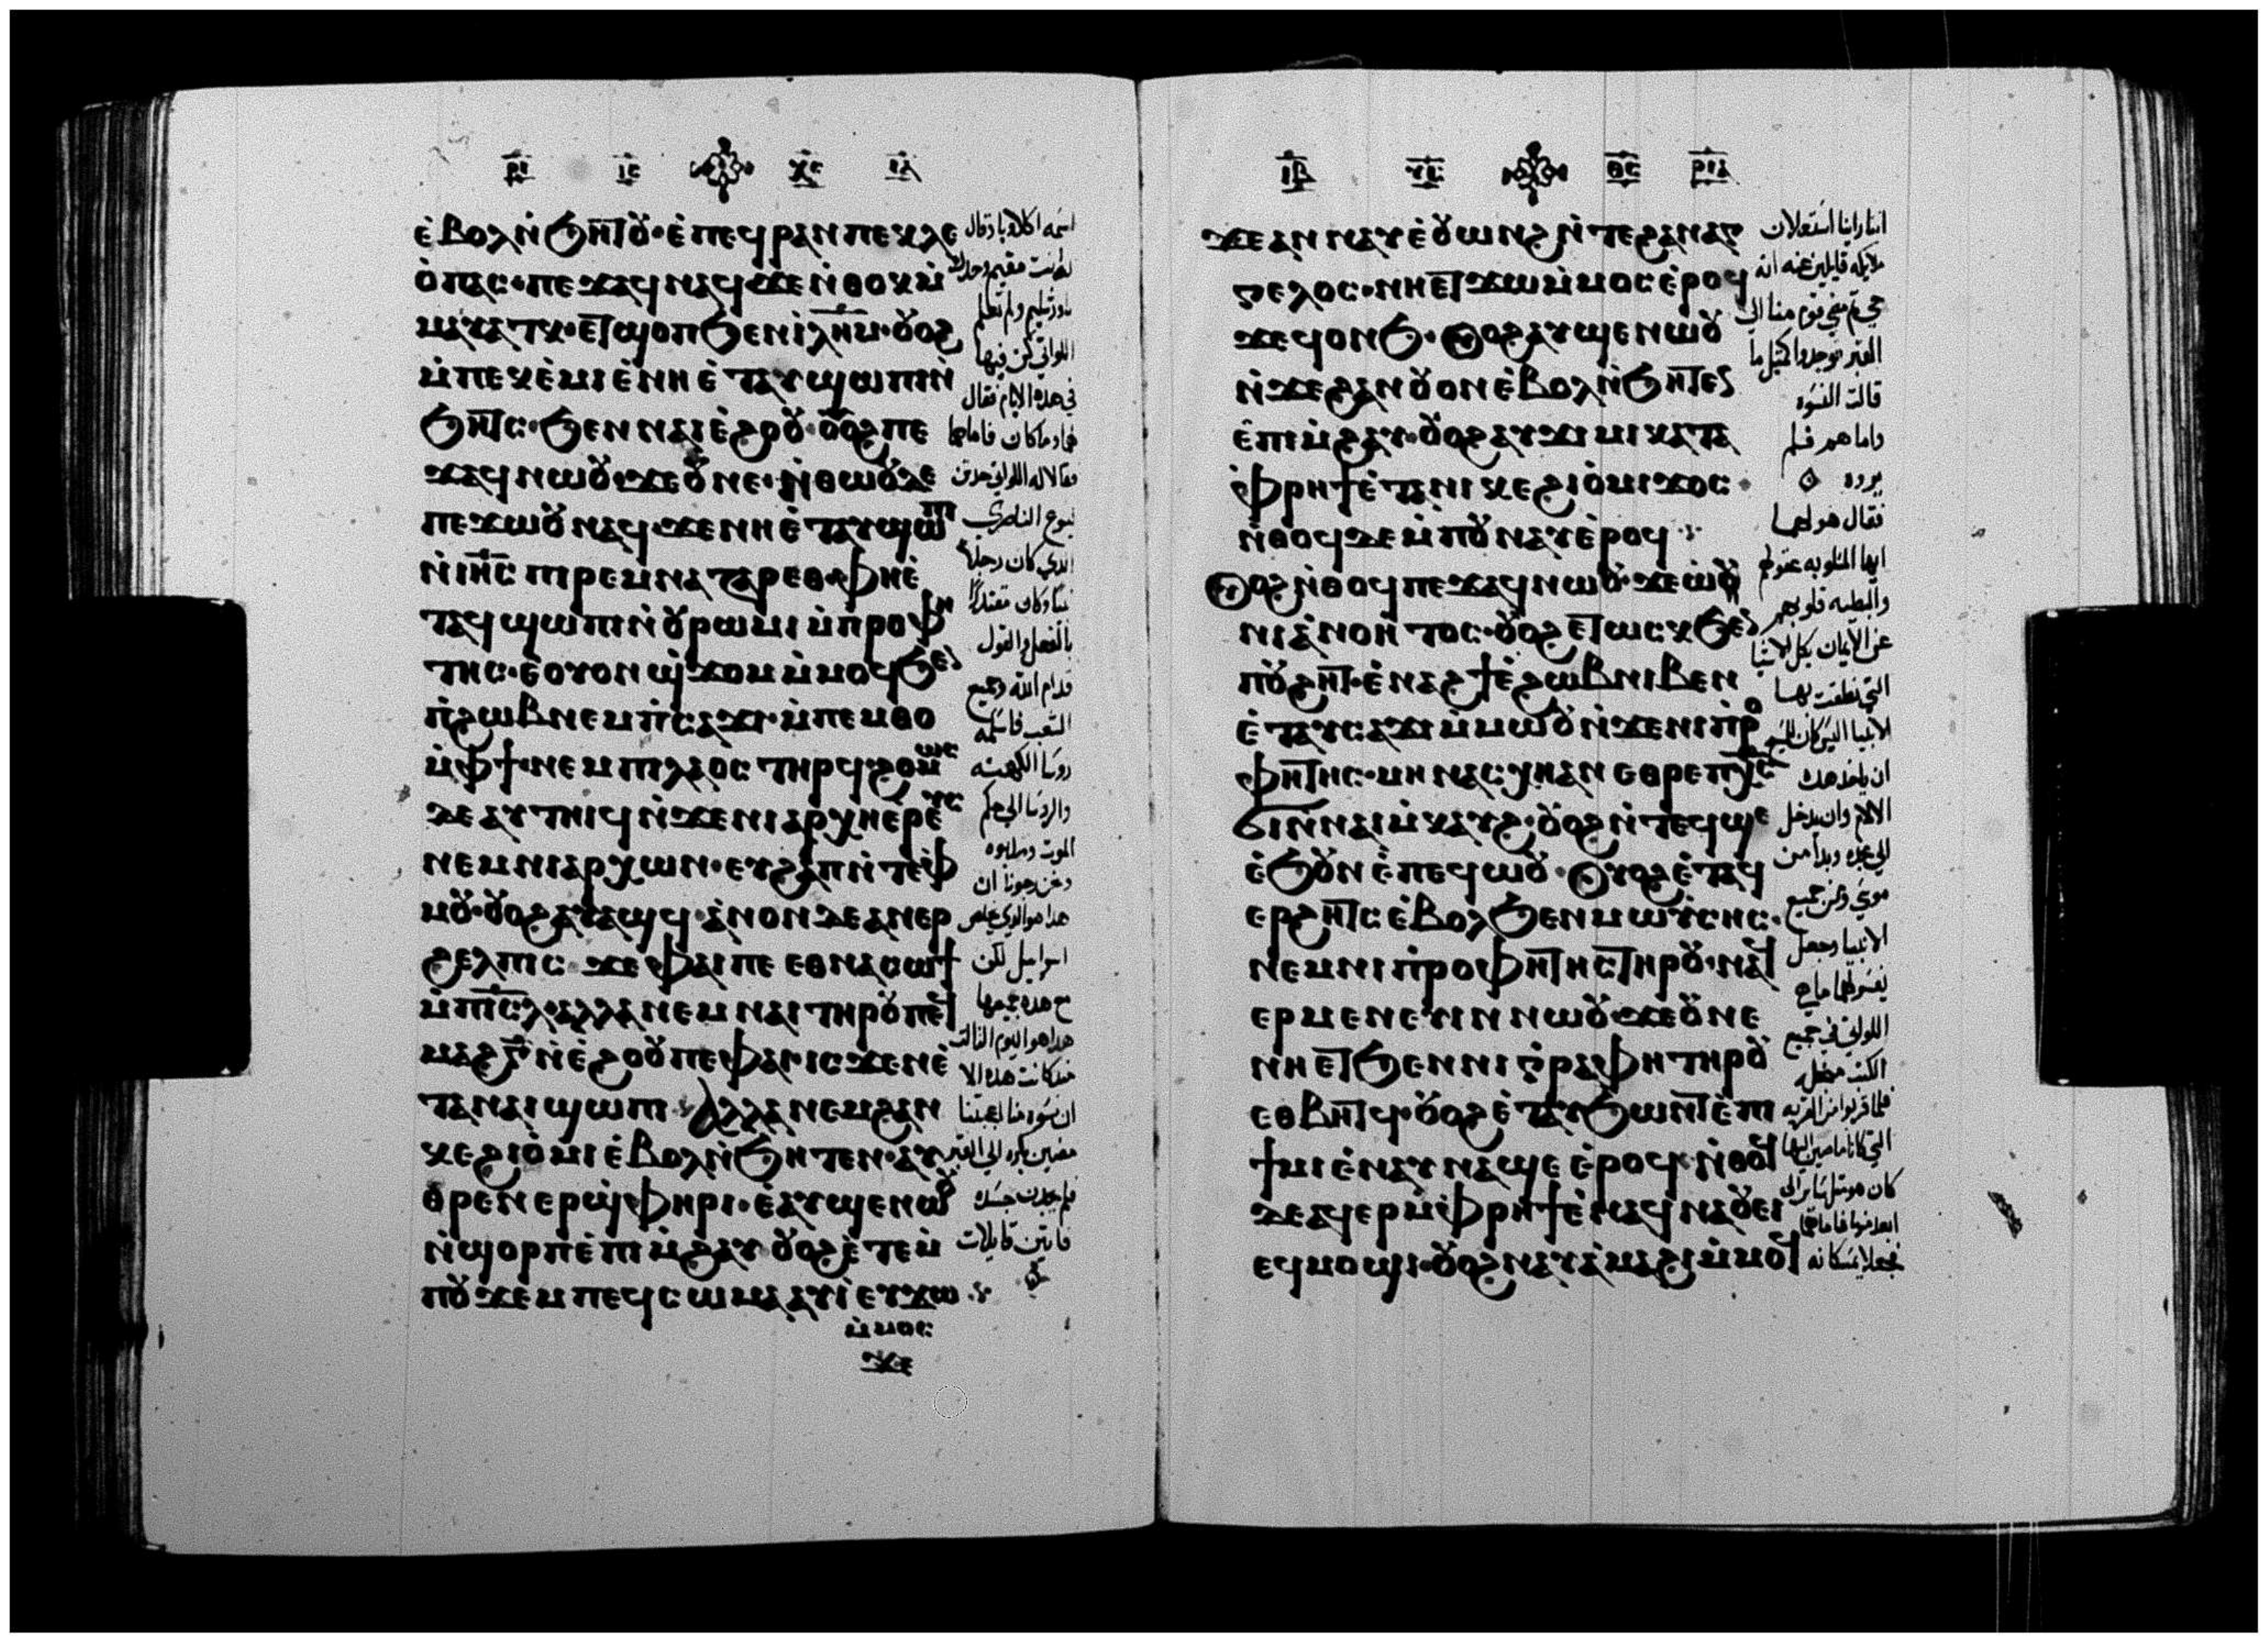 ⲣⲓ ⲓⲥ ⲭⲥ ⲓⲁ
ⲉ̀ⲃⲟⲗⲛ̀ϧⲏⲧⲟⲩ·ⲉ̀ⲡⲉϥⲣⲁⲛⲡⲉⲕⲗⲉ
ⲟ̀ⲡⲁⲥ·ⲡⲉϫⲁϥⲛⲁϥϫⲉⲛ̀ⲑⲟⲕⲙ̀
ⲙⲁⲩⲁⲧⲕ·ⲉⲧϣⲟⲡϧⲉⲛⲓ̀ⲗⲏⲙ·ⲟⲩⲟϩ
ⲙ̀ⲡⲉⲕⲉ̀ⲙⲓⲉ̀ⲛⲏⲉ̀ⲧⲁⲩϣⲱⲡⲓⲛ̀
ϧⲏⲧⲥ·ϧⲉⲛⲛⲁⲓⲉ̀ϩⲟⲟⲩ·ⲟⲩⲟϩⲡⲉ
ϫⲁϥⲛⲱⲟⲩ·ϫⲉⲟⲩⲛⲉ·ⲛ̀ⲑⲱⲟⲩⲇⲉ
ⲡⲉϫⲱⲟⲩⲛⲁϥ·ϫⲉⲛⲏⲉ̀ⲧⲁⲩϣⲱⲡⲓ
ⲛ̀ⲓⲏⲥⲡⲓⲣⲉⲙⲛⲁⲍⲁⲣⲉⲑ·ⲫⲏⲉ̀
ⲧⲁϥϣⲱⲡⲓⲛ̀ⲟⲩⲣⲱⲙⲓⲙ̀ⲡⲣⲟⲫⲏ
ⲧⲏⲥ·ⲉ̀ⲟⲩⲟⲛϣ̀ϫⲟⲙⲙ̀ⲙⲟϥϧⲉⲛ
ⲡ̀ϩⲱⲃⲛⲉⲙⲡ̀ⲥⲁϫⲓ·ⲙ̀ⲡⲉⲙⲑⲟ
ⲙ̀ⲫϯ·ⲛⲉⲙⲡⲓⲗⲁⲟⲥⲧⲏⲣϥ·ϩⲟⲡⲱⲥ
ⲇⲉⲁⲩⲧⲏⲓϥⲛ̀ϫⲉⲛⲓⲁⲣⲭⲏⲉ̀ⲣⲉⲩⲥ
ⲛⲉⲙⲛⲓⲁⲣⲭⲱⲛ·ⲉⲩϩⲁⲡⲛ̀ⲧⲉⲫ
ⲙⲟⲩ·ⲟⲩⲟϩⲁⲩⲁϣϥ·ⲁ̀ⲛⲟⲛⲇⲉⲁⲛⲉⲣ
ϩⲉⲗⲡⲓⲥ ϫⲉⲫⲁⲓⲡⲉ ⲉⲑⲛⲁⲥⲱϯ
ⲙ̀ⲡⲓⲥⲗ·ⲁⲗⲗⲁⲛⲉⲙⲛⲁⲓⲧⲏⲣⲟⲩⲡⲉⲧ
ⲙⲁϩⲅ̅ⲛ̀ⲉ̀ϩⲟⲟⲩⲡⲉⲫⲁⲓⲓⲥϫⲉⲛⲉ̀
ⲧⲁⲛⲁⲓϣⲱⲡⲓ· ⲁⲗⲗⲁⲛⲉⲙϩⲁⲛ
ⲕⲉϩⲓⲟ̀ⲙⲓⲉ̀ⲃⲟⲗⲛ̀ϧⲏⲧⲉⲛ·ⲁⲩ
ⲑⲣⲉⲛⲉⲣϣ̀ⲫⲏⲣⲓ·ⲉ̀ⲁⲩϣⲉⲛⲱⲟⲩ
ⲛ̀ϣⲟⲣⲡⲉ̀ⲡⲓⲙ̀ϩⲁⲩ ⲟⲩⲟϩⲉ̀ⲧⲉⲙ̀
ⲡⲟⲩϫⲉⲙⲡⲉϥⲥⲱⲙⲁⲁⲩⲓ̀ⲉⲩϫⲱ
ⲙ̀ⲙⲟⲥ
ϫⲉ
اسمه اكلاوبا وقال
له انت مقيم وحدك
باورشليم ولم تعلم
اللواتي كن فيها
في هذه الايام فقال
لهما وما كان فاما هما
فقالا له اللواتي حدثن
يسوع الناصري
الذي كان رجلا
نبيا وكان مقتدرًا
بالفعل والقول
قدام الله وجميع
الشعب فاسلمه
روسا الكهنه
والروسا الي حكم
الموت وصلبوه
ونحن رجونا ان
هذا هو الذي يخلص
اسراييل لكن
مع هذه جميعها
هذا هو اليوم الثالث
منذ كانت هذه الا
ان نسوه منا اعجبننا
مضين بكره الي القبر
فلم يجدن جسده
فاتين قايلات
ⲓⲃ ⲩⲥ ⲑⲥ ⲣⲓⲁ
ϫⲉⲁⲛⲛⲁⲩⲉ̀ⲟⲩⲱⲛϩⲛ̀ⲧⲉϩⲁⲛⲁⲅ
ⲅⲉⲗⲟⲥ·ⲛⲏⲉⲧϫⲱⲙ̀ⲙⲟⲥⲉ̀ⲣⲟϥ
ϫⲉϥⲟⲛϧ·ⲟⲩⲟϩⲁⲩϣⲉⲛⲱⲟⲩ
ⲛ̀ϫⲉϩⲁⲛⲟⲩⲟⲛⲉ̀ⲃⲟⲗⲛ̀ϧⲏⲧⲉⲛ
ⲉ̀ⲡⲓⲙ̀ϩⲁⲩ·ⲟⲩⲟϩⲁⲩϫⲓⲙⲓⲕⲁⲧⲁ
ⲫⲣⲏϯⲉ̀ⲧⲁⲛⲓⲕⲉϩⲓⲟ̀ⲙⲓϫⲟⲥ·
ⲛ̀ⲑⲟϥⲇⲉⲙ̀ⲡⲟⲩⲛⲁⲩⲉ̀ⲣⲟϥ
ⲟⲩⲟϩⲛ̀ⲑⲟϥⲡⲉϫⲁϥⲛⲱⲟⲩ·ϫⲉⲱ̀
ⲛⲓⲁ̀ⲛⲟⲏⲧⲟⲥ·ⲟⲩⲟϩⲉⲧⲱⲥⲕϧⲉⲛ
ⲡⲟⲩϩⲏⲧ·ⲉ̀ⲛⲁϩϯⲉ̀ϩⲱⲃⲛⲓⲃⲉⲛ
ⲉ̀ⲧⲁⲩⲥⲁϫⲓⲙ̀ⲙⲱⲟⲩⲛ̀ϫⲉⲛⲓⲡⲣⲟ
ⲫⲏⲧⲏⲥ·ⲙⲏⲛⲁⲥϣⲏⲁⲛ ⲉⲑⲣⲉⲡⲭⲥ
ϭⲓⲛⲛⲁⲓⲙ̀ⲕⲁⲩϩ·ⲟⲩⲟϩⲛ̀ⲧⲉϥϣⲉ
ⲉ̀ϧⲟⲩⲛⲉ̀ⲡⲉϥⲱⲟⲩ·ⲟⲩⲟϩⲉ̀ⲧⲁϥ
ⲉⲣϩⲏⲧⲥⲉ̀ⲃⲟⲗϧⲉⲛⲙⲱⲩ̀ⲥⲏⲥ·
ⲛⲉⲙⲛⲓⲡ̀ⲣⲟⲫⲏⲧⲏⲥⲧⲏⲣⲟⲩ·ⲛⲁϥ
ⲉⲣⲙⲉⲛⲉⲩⲓⲛⲛⲱⲟⲩ·ϫⲉⲟⲩⲛⲉ
ⲛⲏⲉⲧϧⲉⲛⲛⲓⲅ̀ⲣⲁⲫⲏⲧⲏⲣⲟⲩ
ⲉⲑⲃⲏⲧϥ·ⲟⲩⲟϩⲉ̀ⲧⲁⲩϧⲱⲛⲧⲉ̀ⲡⲓ
ϯⲙⲓⲉ̀ⲛⲁⲩⲛⲁϣⲉⲉ̀ⲣⲟϥ·ⲛ̀ⲑⲟϥ
ⲇⲉⲁϥⲉⲣⲙ̀ⲫⲣⲏϯⲉ̀ⲛⲁϥⲛⲁⲟⲩⲉⲓ
ⲉϥⲙⲟϣⲓ·ⲟⲩⲟϩⲛⲁⲩⲁ̀ⲙⲁϩⲓⲙ̀ⲙⲟϥ
اننا راينا استعلان
ملايكه قايلين عنه انه
حي ثم مضي قوم منا الي
القبر فوجدوا كمثل ما
قالت النسوه
واما هم فلم
يروه
فقال هو لهما
ايها المثلوبه عقولهم
والبطيه قلوبهم
عن الايمان بكل الاشيا
التي نطقت بها
الانبيا اليس كان للمسيح
ان ياخذ هذه
الالام وان يدخل
الي مجده وبدا من
موسي ومن جميع
الانبيا وجعل
يفسر لهما ما هي
اللواتي في جميع
الكتب من اجله
فلما قربوا من القريه
التي كانا ماضيين اليها
كان هو مثل ساير الي
ابعد منها فاما هما
فجعلا يمسكانه